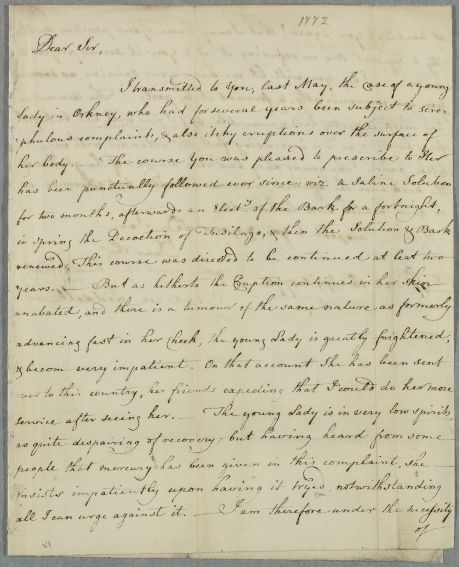 1772
Dear Sir,
I transmitted to You, last May, the Case of a young
Lady in Orkney, who had for several years been subject to scro-
:phulous complaints, & also itchy eruptions over the surface of
her body. — The course You was pleased to prescribe to Her
has been punctually followed ever since: viz. a Saline Solution
for two months, afterwards an Elect.y of the Bark for a fortnight,
in Spring the Decoction of Tusilago, & then the Solution & Bark
renewed: This course was directed to be continued at least two
years. — But as hitherto the Eruption continues in her Skin
unabated, and there is a tumour of the same nature as formerly
advancing fast in her Cheek, the young Lady is greatly frightened,
& become very impatient. On that account She has been sent
over to this country, her friends expecting that I could do her more
service after seeing her. — The young Lady is in very low spirits,
as quite despairing of recovery: but having heard from some
people that mercury has been given in this complaint, she
insists impatiently upon having it tryed, notwithstanding
all I can urge against it. — I am therefore under the necessity
of